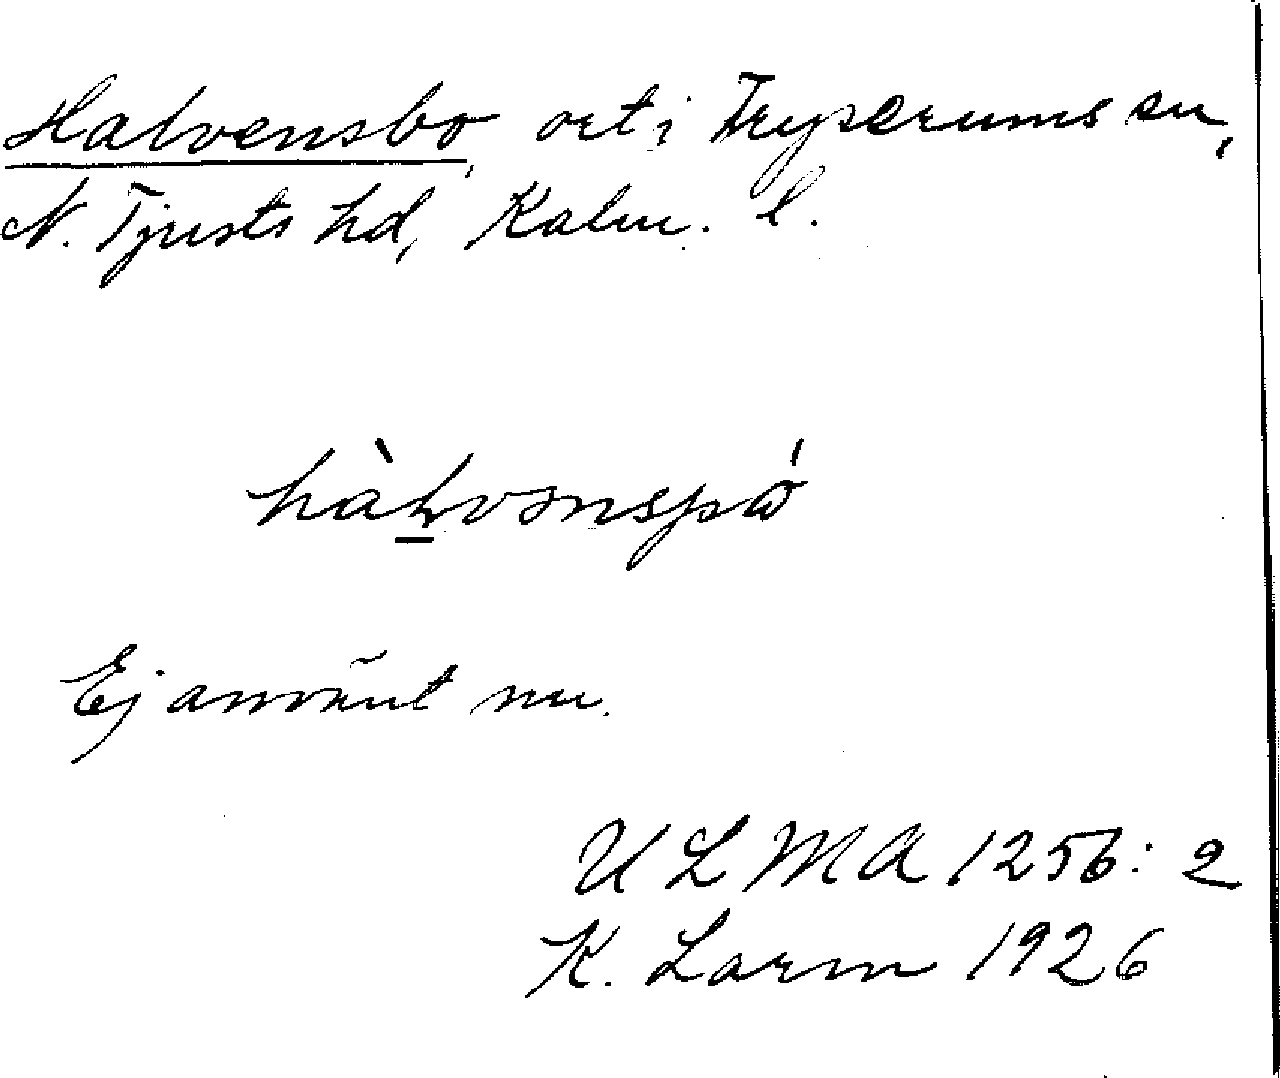 Halvensbo, ort i Tryserums sn,
N. Tjusts hd, Kalm. l.
Ej använt nu.
ULMA 1256: 2
K. Larm 1926